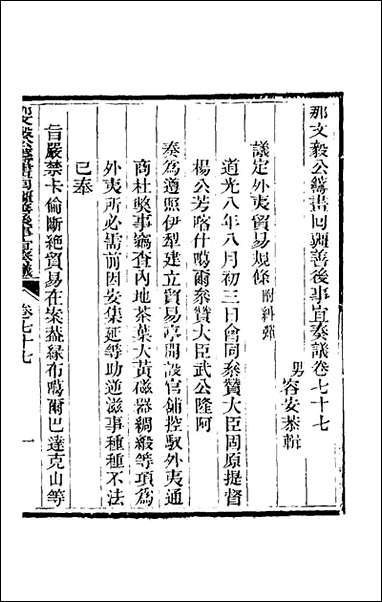 那文毅公籌畫回疆善後事宜奏議卷七十七
男容安恭輯
議定外夷貿易規條 附糾彈
道光八年八月初三日會同參贊大臣固原提督
楊公芳喀什噶爾參贊大臣武公隆阿
奏爲遵照伊犁建立貿易亭開設官舖控馭外夷通
商杜獘事竊查內地茶葉大黃磁器綢緞等項爲
外夷所必需前因安集延等助逆滋事種種不法
已奉
旨嚴禁卡倫斷絕貿易在案茲緣布噶爾巴達克山等
那文毅公籌畫回疆善後事宜奏議
卷七十七
一